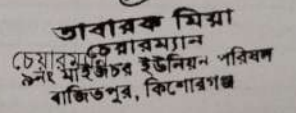 তাবারক মিয়া
চেয়ারম্যান
৮নং মাইজচর ইউনিয়ন পরিষদ
বাজিতপুর, কিশোরগঞ্জ